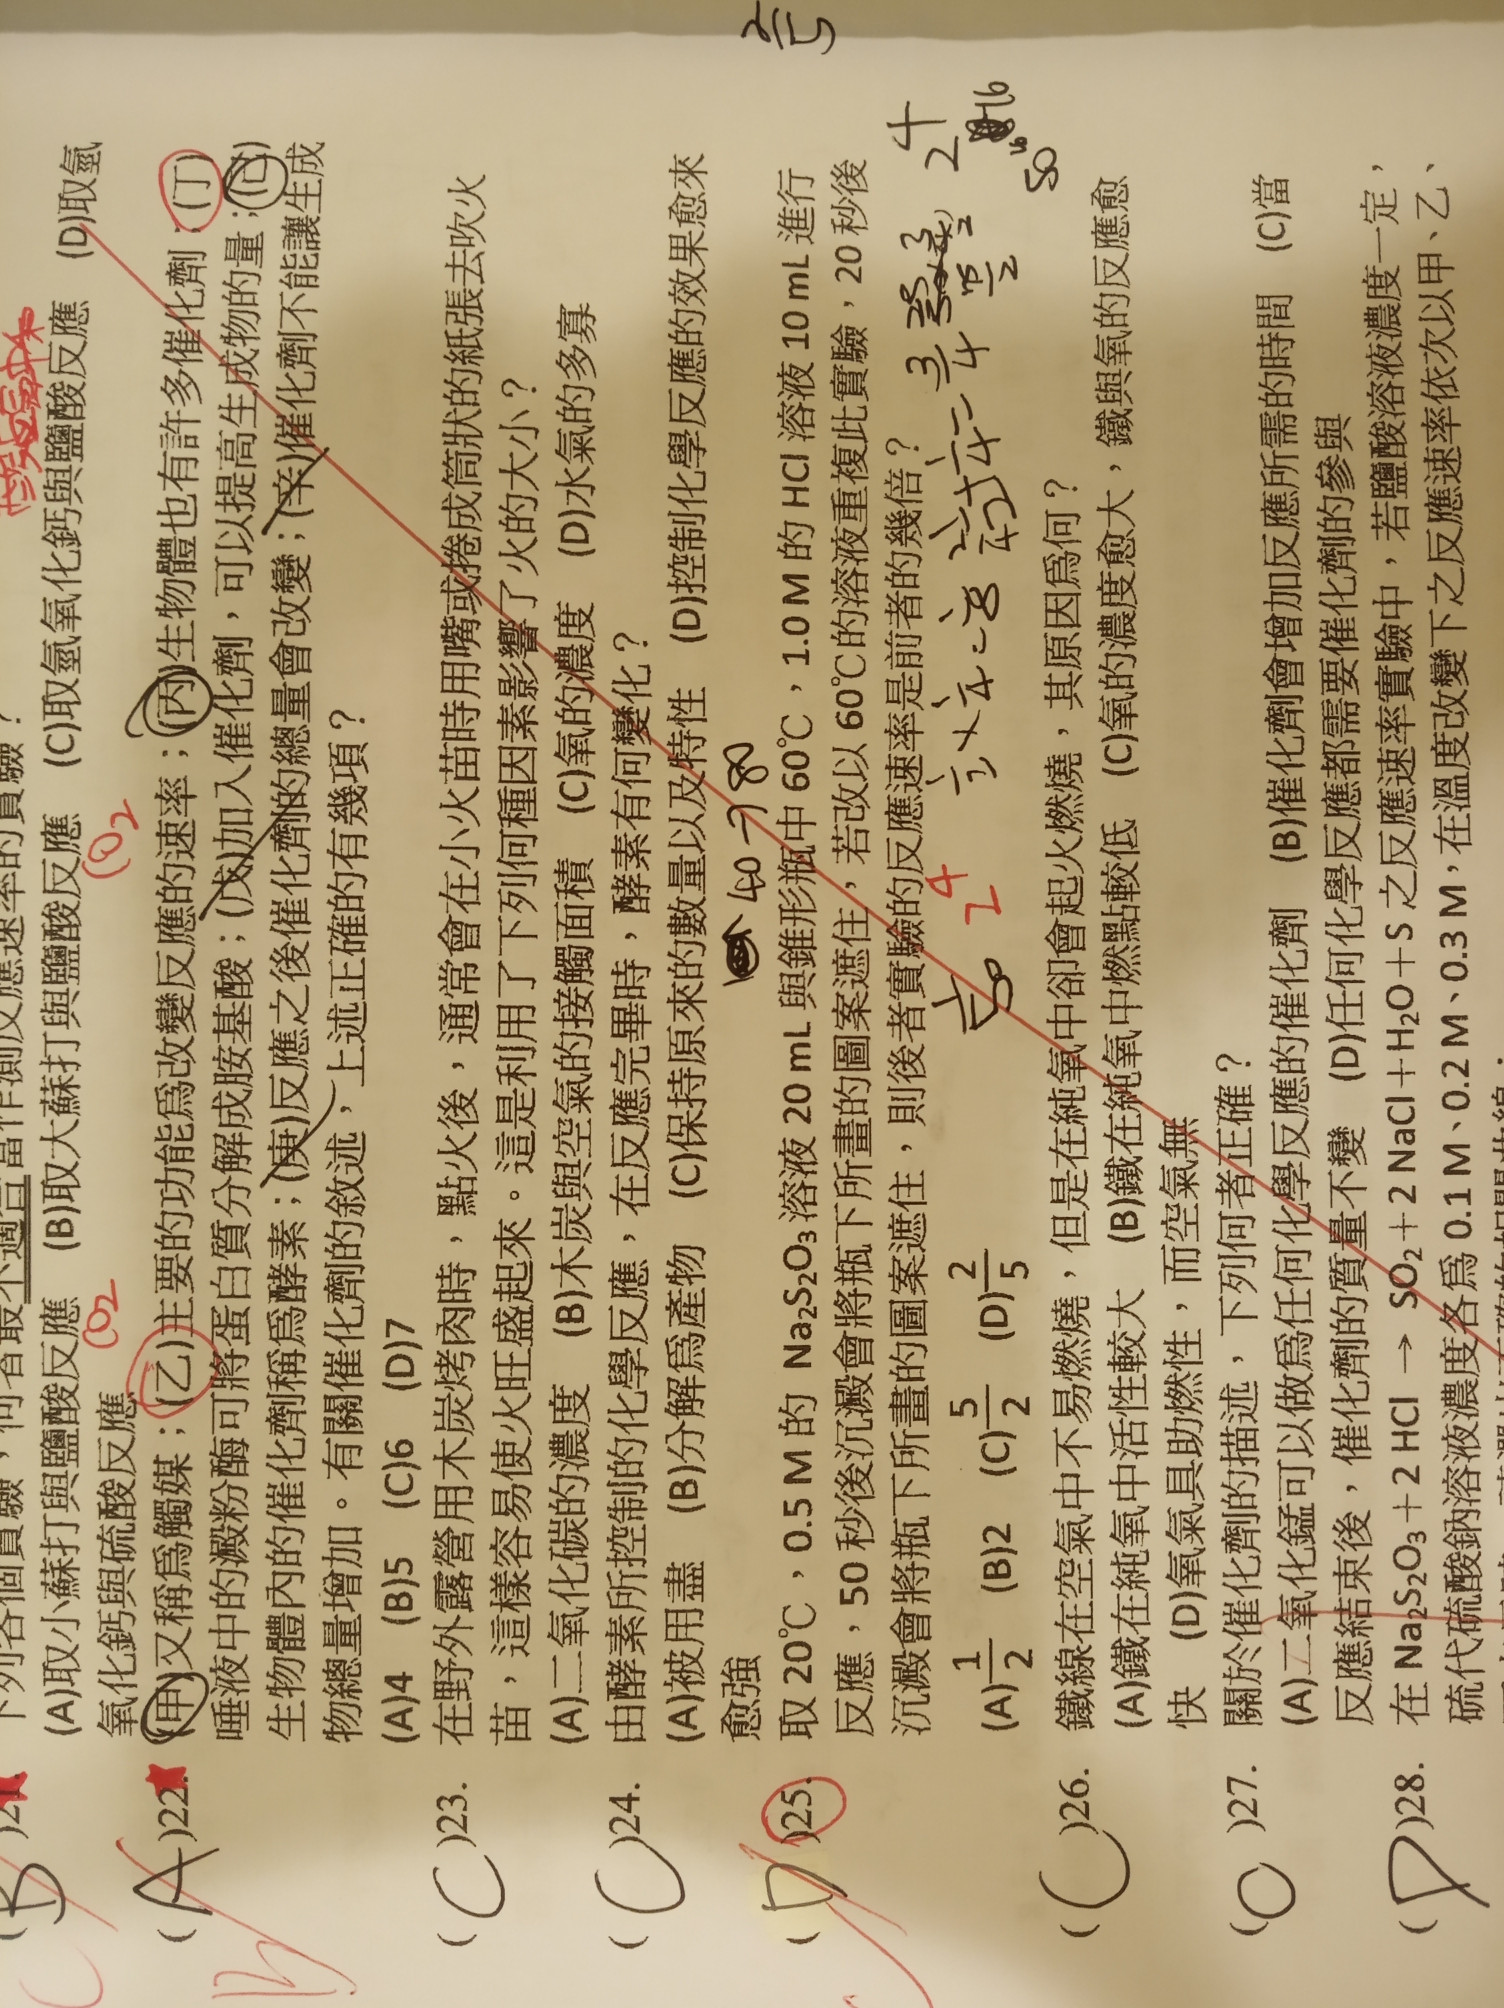 下列各個實驗，何者最不適合當作測反應速率的實驗？
(A)取小蘇打與鹽酸反應 (B)取大蘇打與鹽酸反應 (C)取氫氧化鈣與鹽酸反應 (D)取氫
氧化鈣與硫酸反應
CO2 CO2
(A)22. (甲)又稱爲觸媒；(乙)主要的功能爲改變反應的速率；(丙)生物體也有許多催化劑；(丁)
唾液中的澱粉酶可將蛋白質分解成胺基酸；(戊)加入催化劑，可以提高生成物的量；(己)
生物體內的催化劑稱爲酵素；(庚)反應之後催化劑的總量會改變；(辛)催化劑不能讓生成
物總量增加。有關催化劑的敘述，上述正確的有幾項？
(A)4 (B)5 (C)6 (D)7
(C)23. 在野外露營用木炭烤肉時，點火後，通常會在小火苗時用嘴或捲成筒狀的紙張去吹火
苗，這樣容易使火旺盛起來。這是利用了下列何種因素影響了火的大小？
(A)二氧化碳的濃度 (B)木炭與空氣的接觸面積 (C)氧的濃度 (D)水氣的多寡
(C)24. 由酵素所控制的化學反應，在反應完畢時，酵素有何變化？
(A)被用盡 (B)分解爲產物 (C)保持原來的數量以及特性 (D)控制化學反應的效果愈來
愈強
40→80
(D)25. 取 20℃，0.5 M 的 Na₂S₂O₃ 溶液 20 mL 與錐形瓶中 60℃，1.0 M 的 HCl 溶液 10 mL 進行
反應，50 秒後沉澱會將瓶下所畫的圖案遮住，若改以 60℃的溶液重複此實驗，20 秒後
沉澱會將瓶下所畫的圖案遮住，則後者實驗的反應速率是前者的幾倍？
(A)1/2 (B)2 (C)5/2 (D)2/5
(C)26. 鐵線在空氣中不易燃燒，但是在純氧中卻會起火燃燒，其原因爲何？
(A)鐵在純氧中活性較大 (B)鐵在純氧中燃點較低 (C)氧的濃度愈大，鐵與氧的反應愈
快 (D)氧氣具助燃性，而空氣無
(C)27. 關於催化劑的描述，下列何者正確？
(A)二氧化錳可以做爲任何化學反應的催化劑 (B)催化劑會增加反應所需的時間 (C)當
反應結束後，催化劑的質量不變 (D)任何化學反應都需要催化劑的參與
(D)28. 在 Na₂S₂O₃＋2 HCl → SO₂＋2 NaCl＋H₂O＋S 之反應速率實驗中，若鹽酸溶液濃度一定，
硫代硫酸鈉溶液濃度各爲 0.1 M、0.2 M、0.3 M，在溫度改變下之反應速率依次以甲、乙、